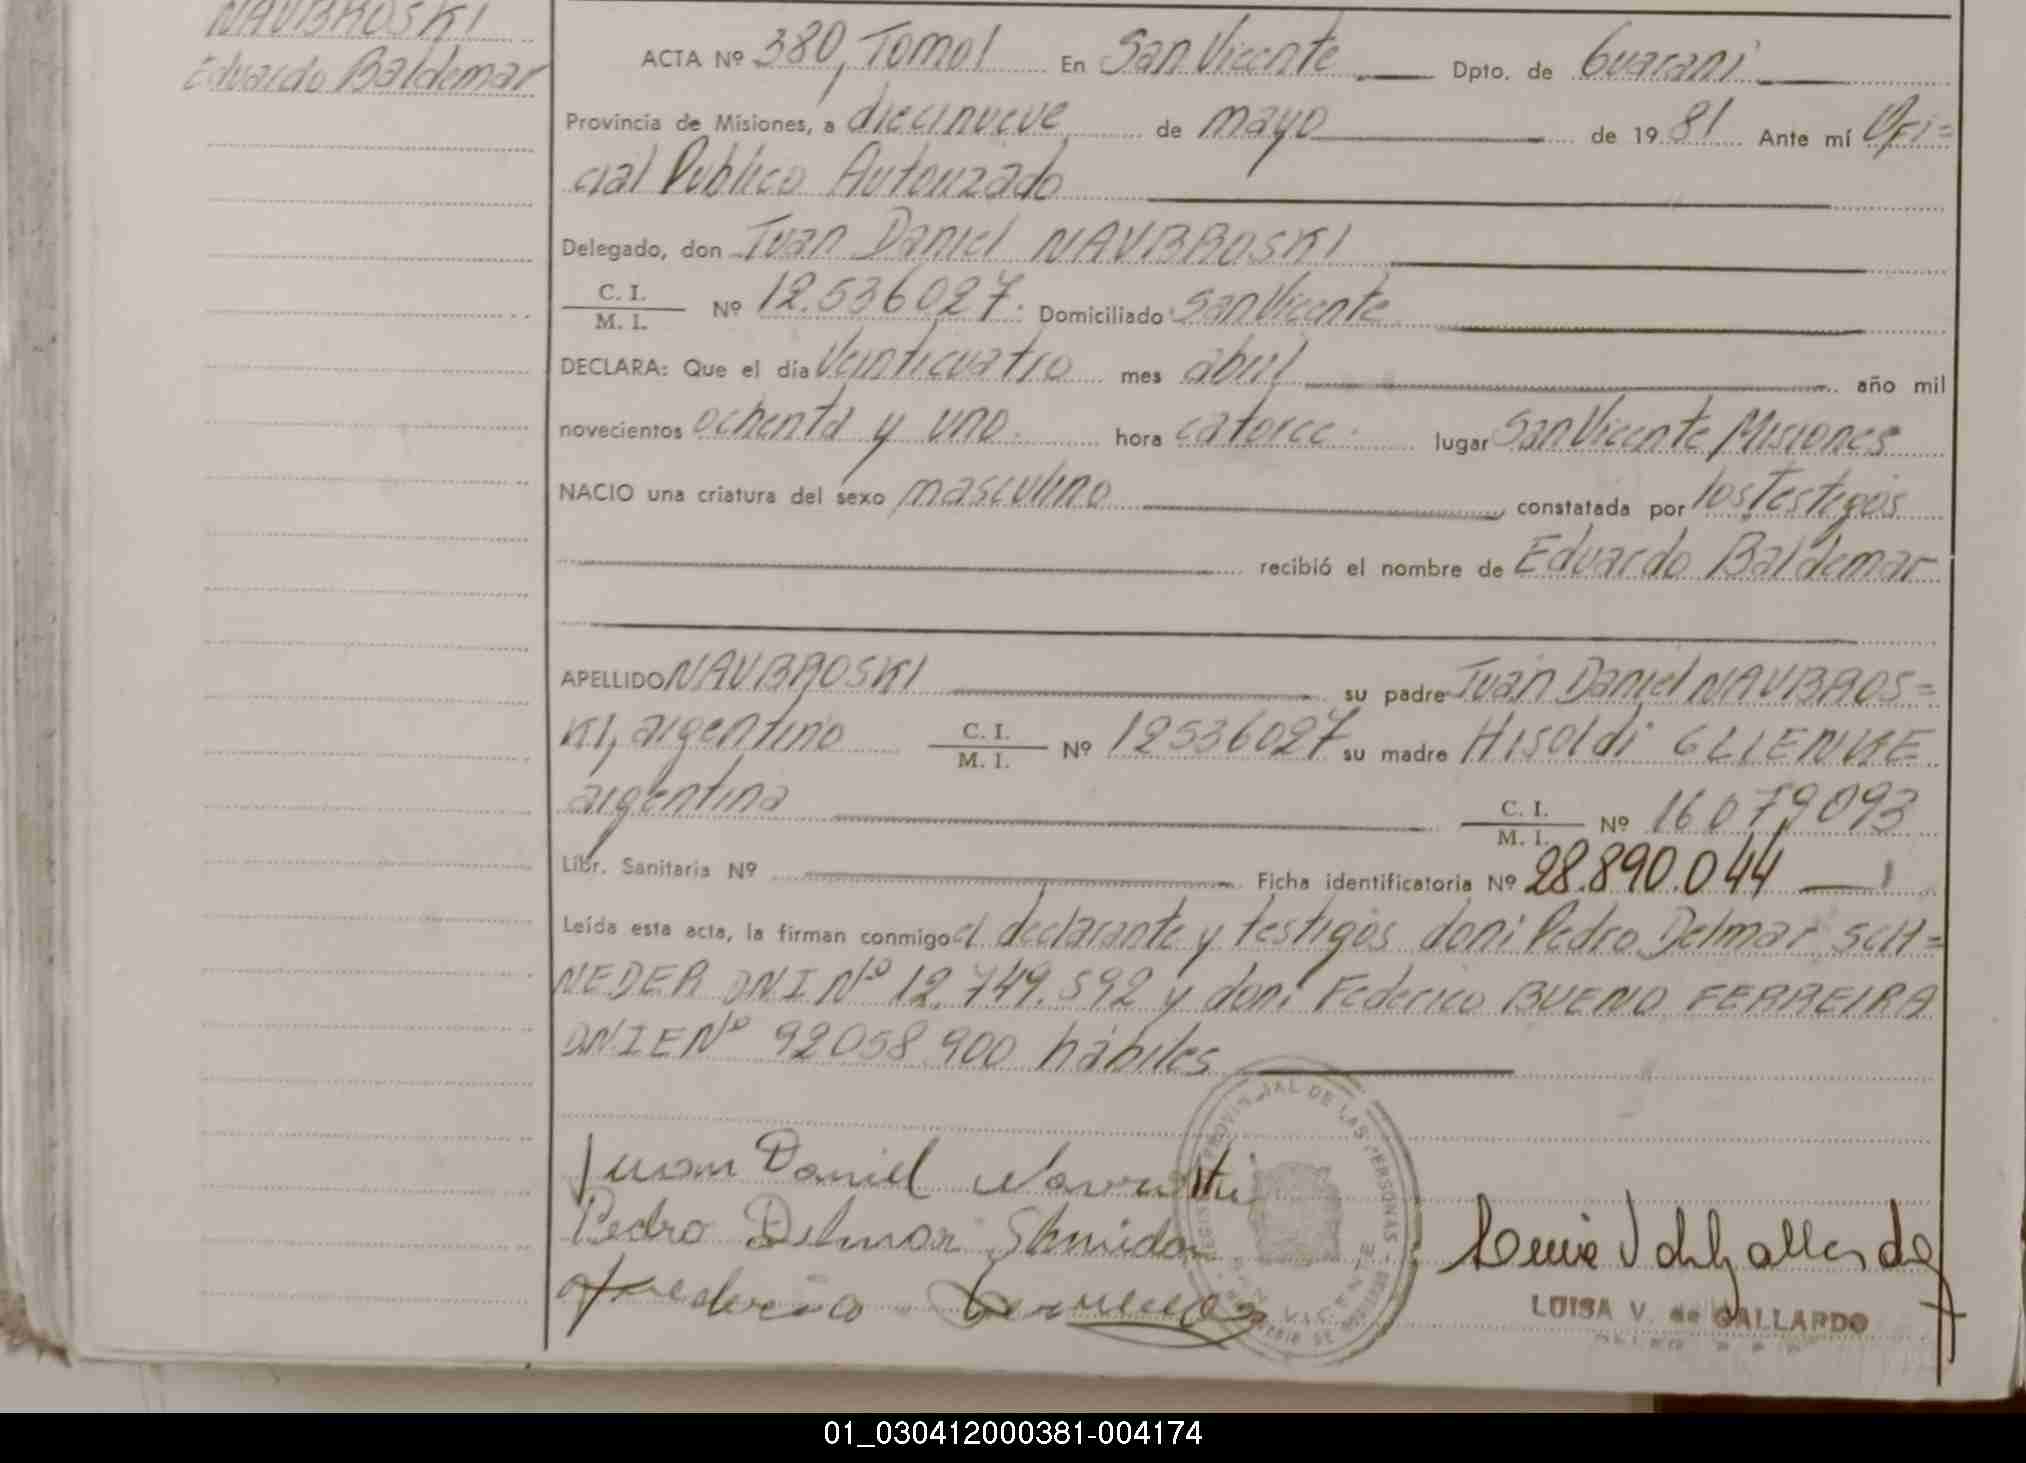 NAVBROSKI
Eduardo Baldemar
ACTA Nº 380, Tomo I En San Vicente Dpto. de Guarani
Provincia de Misiones, a diecinueve de mayo de 1981 Ante mí Ofi=
cial Publico Autorizado
Delegado, don Juan Daniel NAVBROSKI
C. I.
M. I. Nº 12.536027. Domiciliado San Vicente
DECLARA: Que el dia veinticuatro mes abril año mil
novecientos ochenta y uno. hora catorce. lugar San Vicente Misiones
NACIO una criatura del sexo masculino constatada por los Testigos
recibió el nombre de Eduardo Baldemar
APELLIDO NAVBROSKI su padre Juan Daniel NAVBROS=
KI, argentino C. I. M. I. Nº 12536027 su madre Hisoldi GLIENKE
argentina C. I. M. I. Nº 16079093
Libr. Sanitaria Nº Ficha identificatoria Nº 28.890.044
Leída esta acta, la firman conmigo el declarante y testigos don: Pedro Delmar SCH=
NEDER DNI Nº 12.749.592 y don: Federico BUENO FERREIRA
DNIE Nº 92058.900 hábiles
Juan Daniel
Pedro Delmar
PROVINCIAL DE LAS PERSONAS
VICENTE
LUISA V. de GALLARDO
01_030412000381-004174